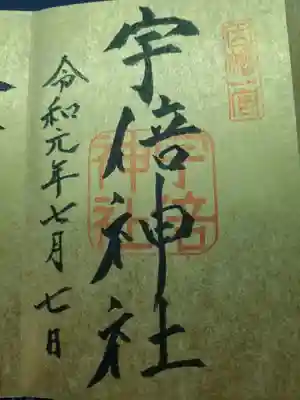 因幡一宮
宇倍神社
宇倍神社
令和元年七月七日